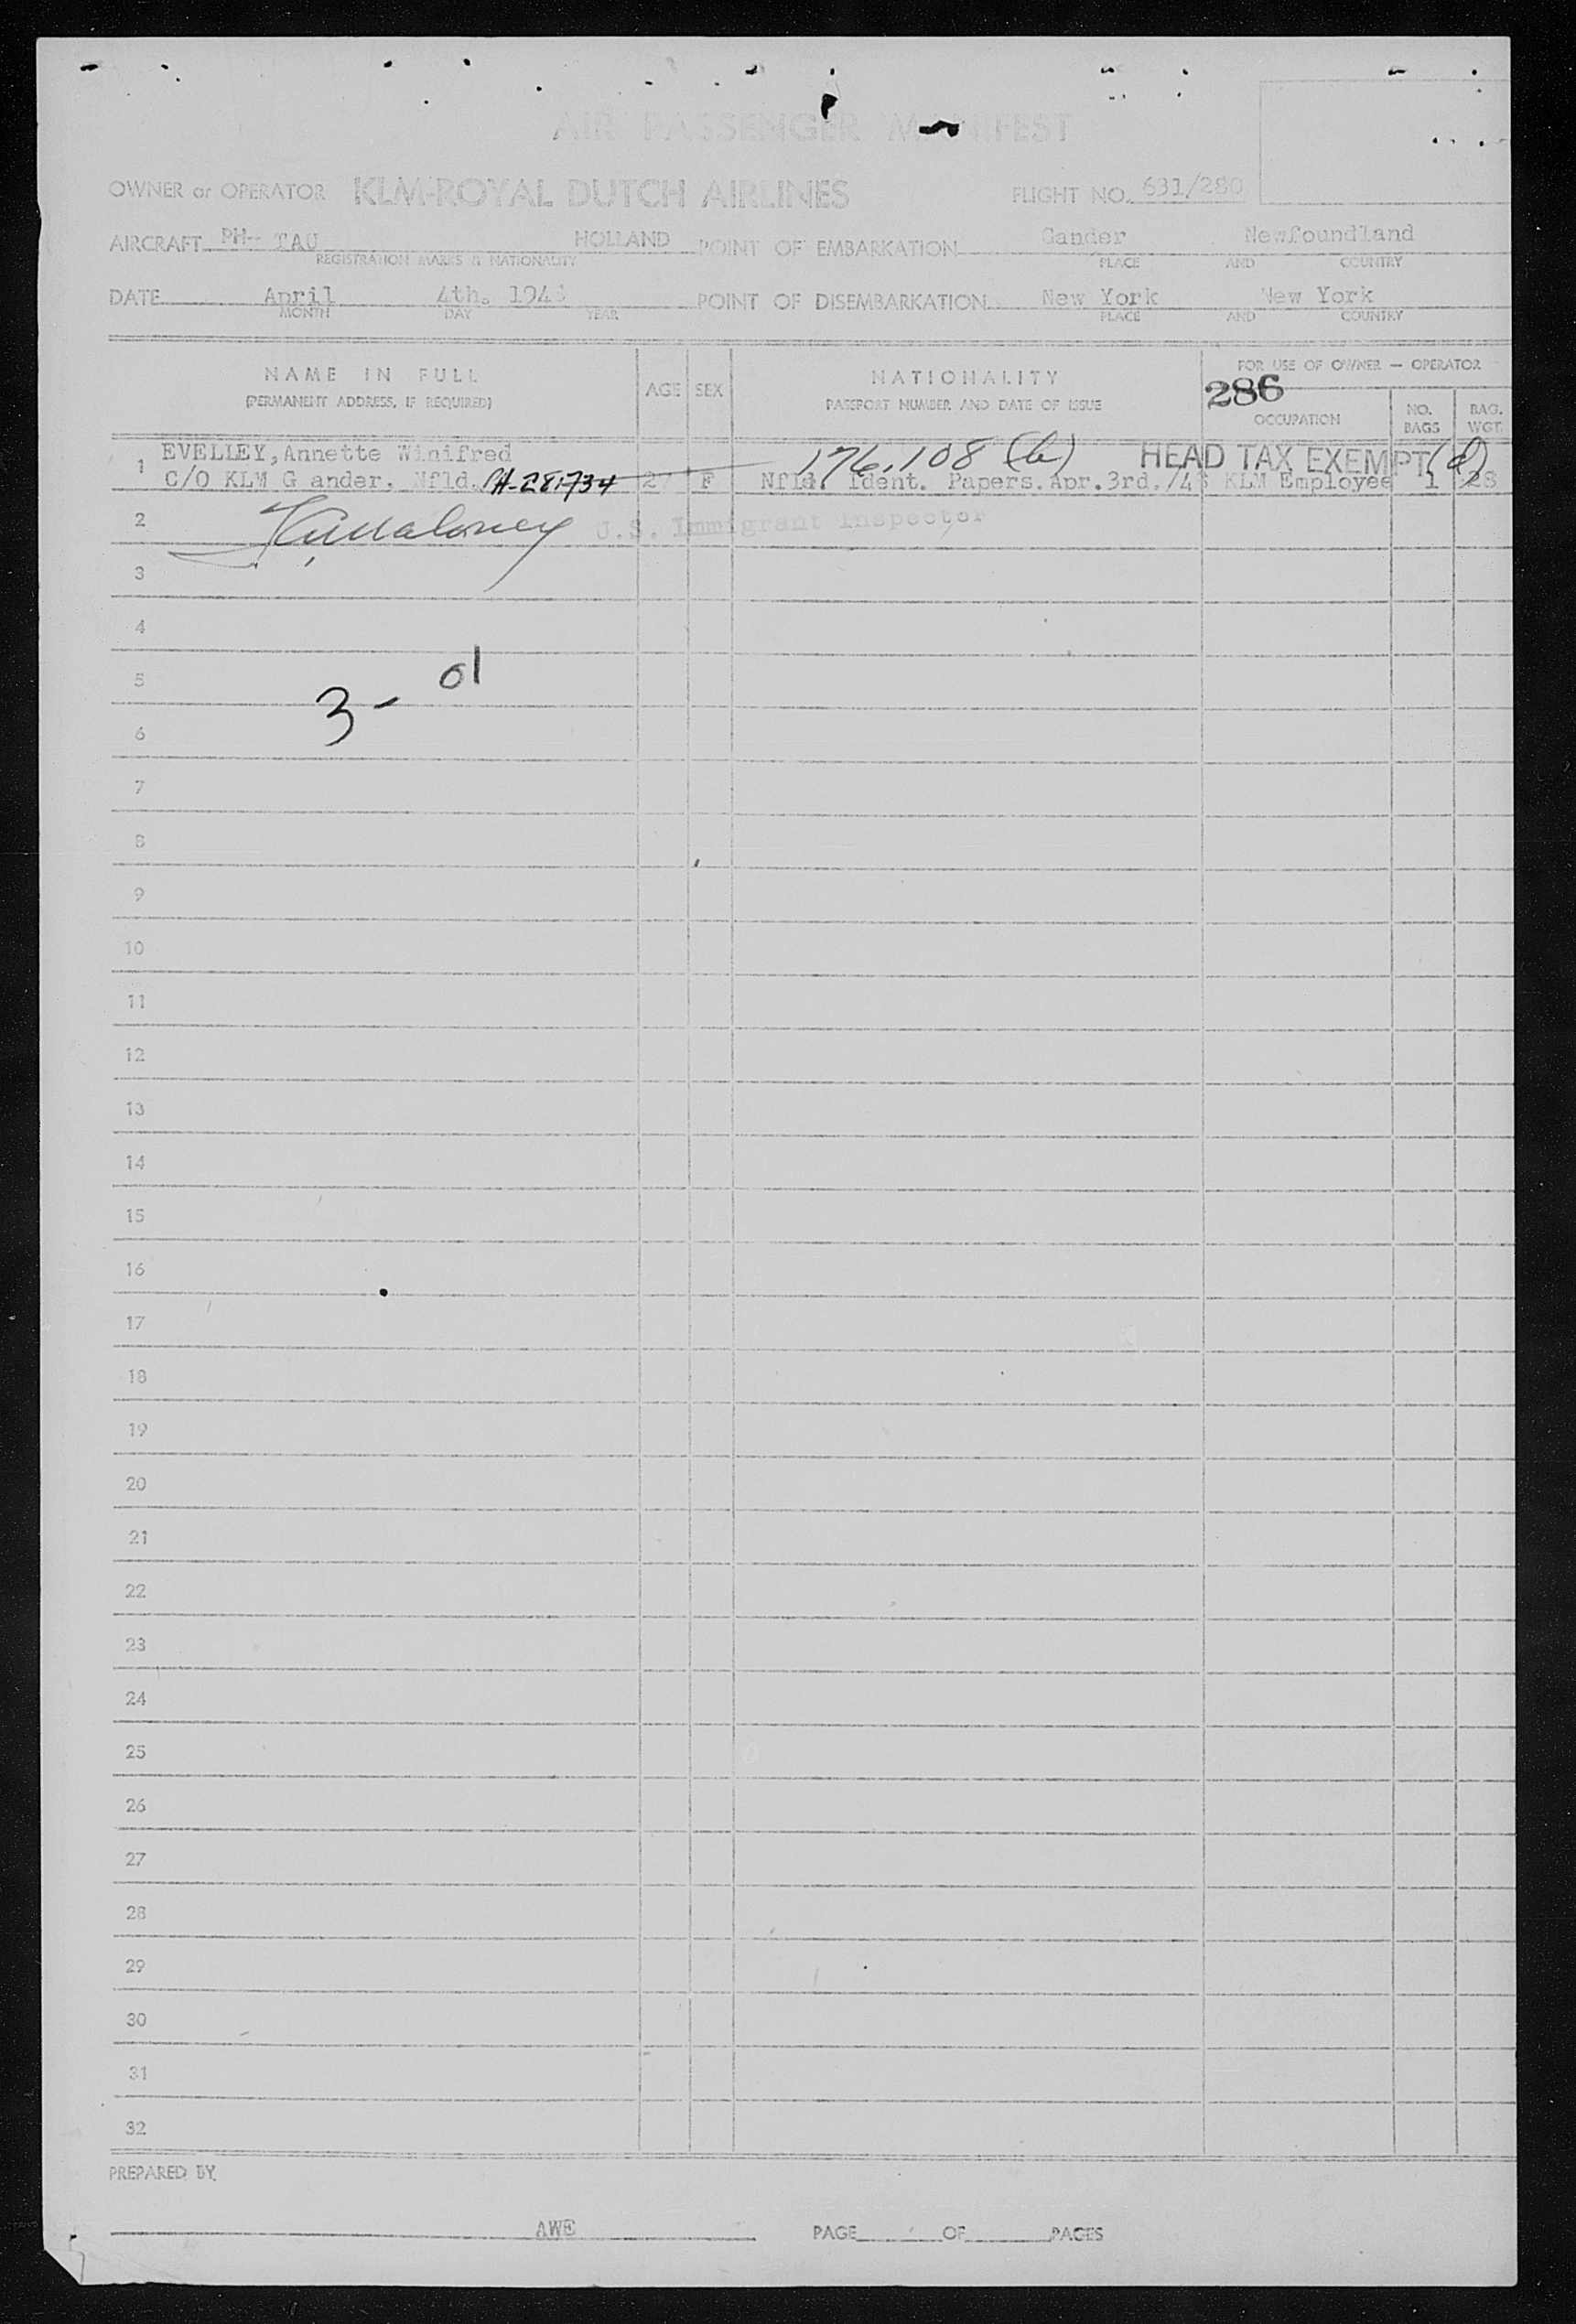 AIR PASSENGER MANIFEST
OWNER or OPERATOR KLM-ROYAL DUTCH AIRLINES FLIGHT NO. 631/280
AIRCRAFT PH- TAU HOLLAND POINT OF EMBARKATION Gander Newfoundland
REGISTRATION MARKS & NATIONALITY PLACE AND COUNTRY
DATE April 4th. POINT OF DISEMBARKATION New York New York
MONTH DAY YEAR PLACE AND COUNTRY
NAME IN FULL
(PERMANENT ADDRESS, IF REQUIRED)
AGE SEX
NATIONALITY
PASSPORT NUMBER AND DATE OF ISSUE
FOR USE OF OWNER — OPERATOR
286
OCCUPATION
NO. BAGS
BAG. WGT.
EVELLEY, Annette Winifred 176.108 (b) HEAD TAX EXEMPT (d)
1 C/O KLM G ander. Nfld. 27 F Nfld. Ident. Papers. Apr. 3rd. KLM Employee 1 28
2 U.S. Immigrant Inspector
3
4
5 01
3-
6
7
8
9
10
11
12
13
14
15
16
17
18
19
20
21
22
23
24
25
26
27
28
29
30
31
32
PREPARED BY
AWE PAGE OF PAGES